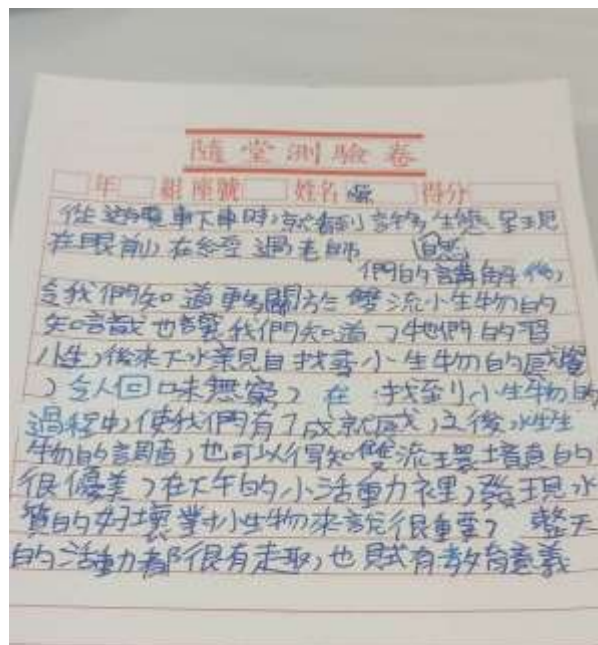 隨堂測驗卷
年 組 座號 姓名 得分
從遊覽車下車時,就看到許多生態呈現
在眼前,在經過老師 自然
們的講解後,
令我們知道更多關於雙流小生物的
知識也讓我們知道了牠們的習
性,後來下水親自找尋小生物的感覺
,令人回味無窮,在 找到小小生物的
過程中,使我們有了成就感,之後水生生
物的調查,也可以得知雙流環境真的
很優美,在下午的小活動裡,發現水
質的好壞對小生物來說很重要, 整天
的活動都很有趣,也很有教育意義